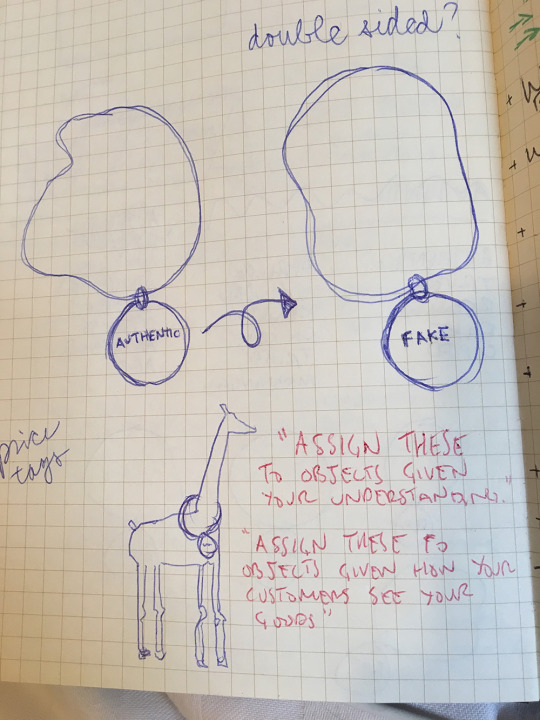 double sided?
AUTHENTIC
FAKE
price
tags
"ASSIGN THESE
TO OBJECTS GIVEN
YOUR UNDERSTANDING."
"ASSIGN THESE TO
OBJECTS GIVEN HOW YOUR
CUSTOMERS SEE YOUR
GOODS"